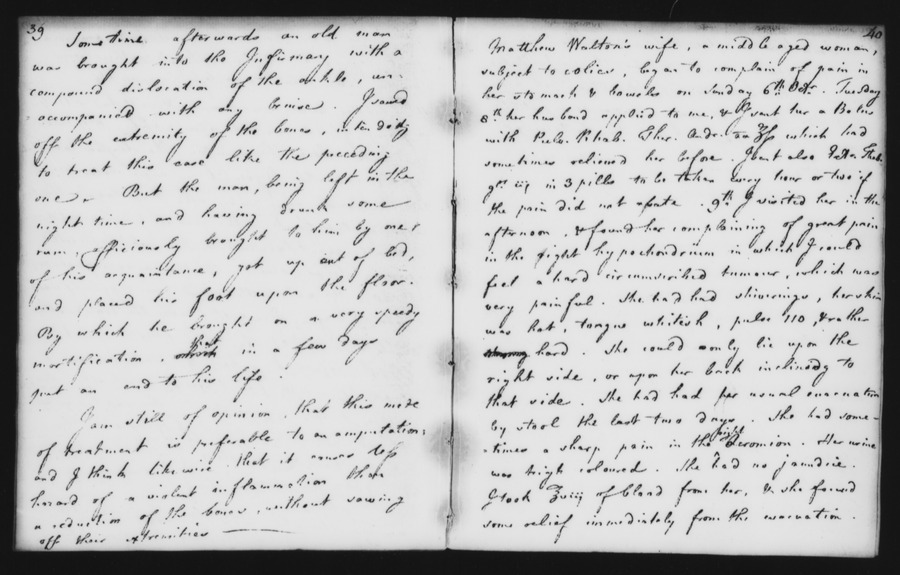 39
Some time afterwards an old man
was brought into the Infirmary with a
compound dislocation of the ankle, un-
-accompanied with any bruise. I sawed
off the extremity of the bones, intending
to treat this case like the preceding
one. But the man, being left in the
night time, and having drunk some
rum, officiously brought to him by one
of his acquaintance, got up out of bed,
and placed his foot upon the floor.
By which he brought on a very speedy
mortification, this in a few days
put an end to his life.
I am still of opinion, that this mode
of treatment is preferable to an amputation;
and I think likewise that it causes less
hazard of a violent inflammation than
a reduction of the bones, without sawing
off their extremities
40
Matthew Walton's wife, a middle aged woman,
subject to colics, began to complain of pain in
her stomach & bowels on Sunday 6th Octr. Tuesday
8th her husband applied to me, & I sent her a Bolus
with Pulv. Rhab. which had
sometimes relieved her before. I sent also Extr. Theb.
gr. iij in 3 pills to be taken every hour or two if
the pain did not abate. 9th I visited her in the
afternoon, & found her complaining of great pain
in the right hypochondrium in which I could
feel a hard circumscribed tumour, which was
very painful. She had had shiverings, her skin
was hot, tongue whitish, pulse 110, & rather
hard. She could only lie upon the
right side, or upon her back inclinedy to
that side. She had had her usual evacuation
by stool the last two days. She had some-
-times a sharp pain in the right acromion. Her urine
was high coloured. She had no jaundice.
I took ℥viij of blood from her, & she found
some relief immediately from the evacuation.